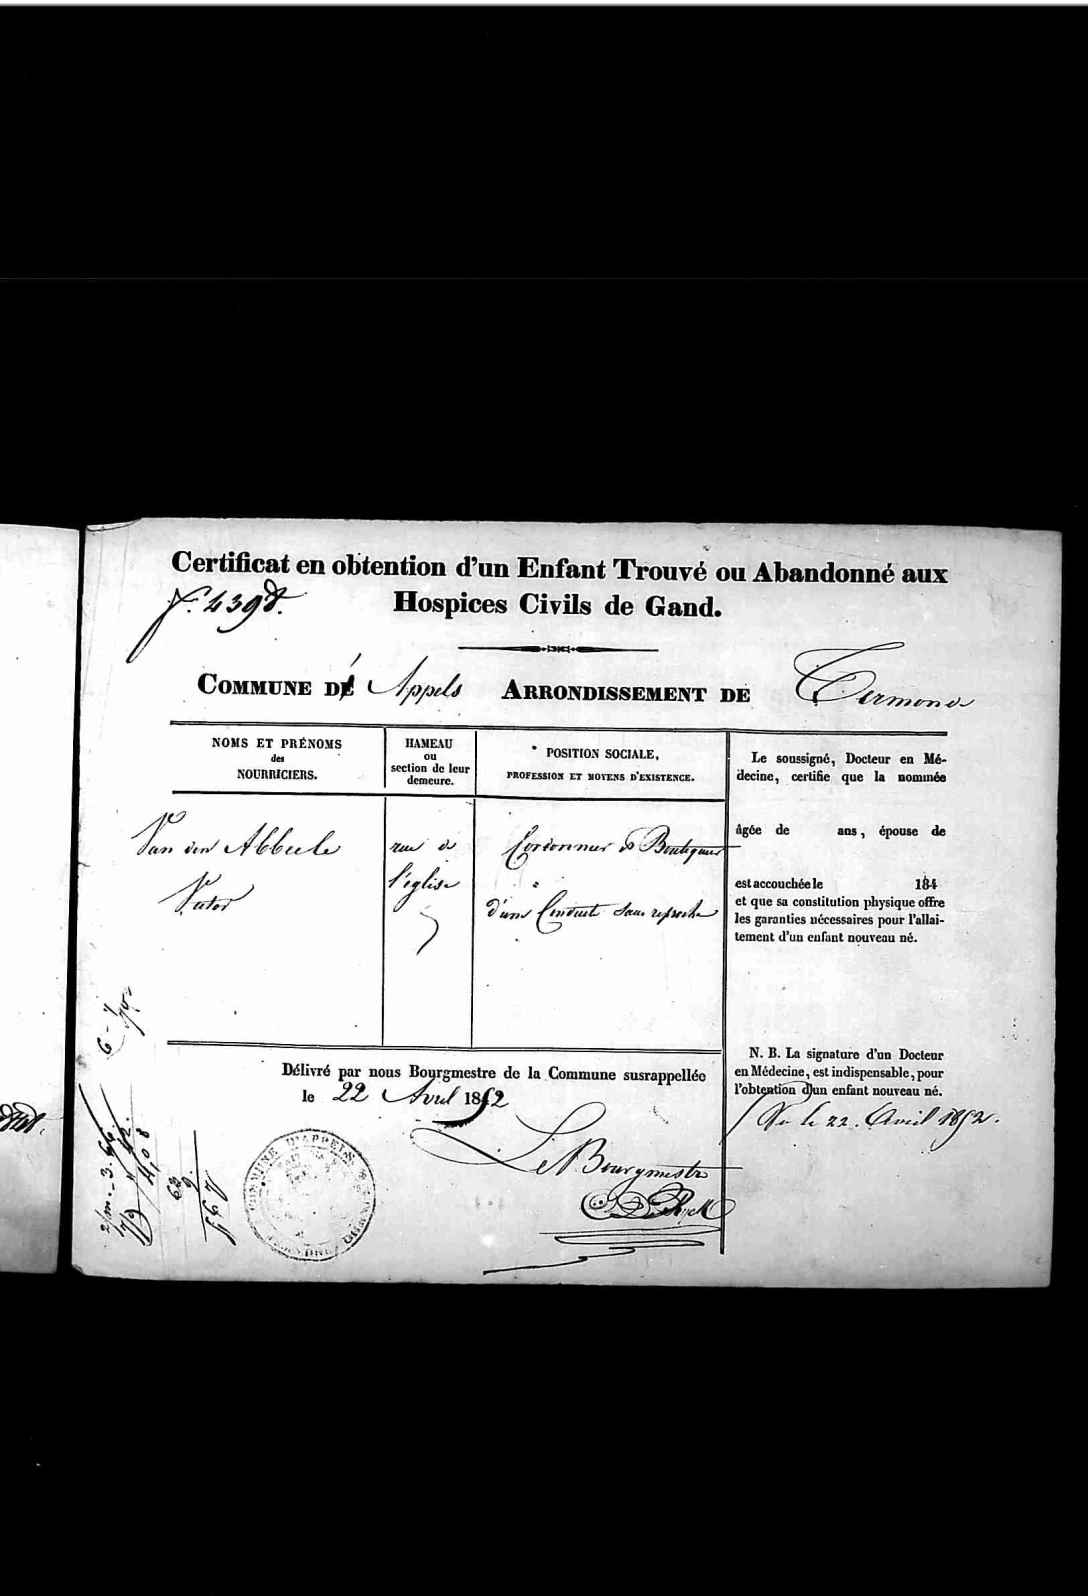 Certificat en obtention d'un Enfant Trouvé ou Abandonné aux
Hospices Civils de Gand.
f. 439
COMMUNE D' Appels ARRONDISSEMENT DE Termonde
NOMS ET PRÉNOMS
des
NOURRICIERS.
HAMEAU
ou
section de leur
demeure.
POSITION SOCIALE,
PROFESSION ET MOYENS D'EXISTENCE.
Van den Abbeele
Victor
rue de
l'église
Cordonnier et Boutiquier
d'une Conduite sans reproche
Le soussigné, Docteur en Mé-
decine, certifie que la nommée
âgée de ans, épouse de
est accouchée le 184
et que sa constitution physique offre
les garanties nécessaires pour l'allai-
tement d'un enfant nouveau né.
N. B. La signature d'un Docteur
en Médecine, est indispensable, pour
l'obtention d'un enfant nouveau né.
Vu le 22. Avril 1852.
Délivré par nous Bourgmestre de la Commune susrappellée
le 22 Avril 1852
Le Bourgmestre
COMMUNE D'APPELS